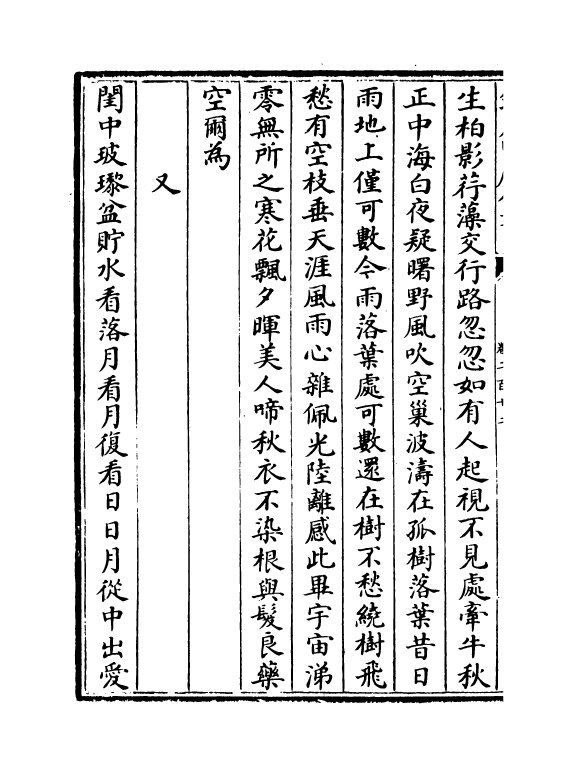 生柏影荇藻交行路忽忽如有人起視不見處牽牛秋
正中海白夜疑曙野風吹空巢波濤在孤樹落葉昔日
雨地上僅可數今雨落葉處可數還在樹不愁繞樹飛
愁有空枝垂天涯風雨心雜佩光陸離感此畢宇宙涕
零無所之寒花飄夕暉美人啼秋衣不染根與髮良藥
空爾為
又
閨中玻瓈盆貯水看落月看月復看日日月從中出愛